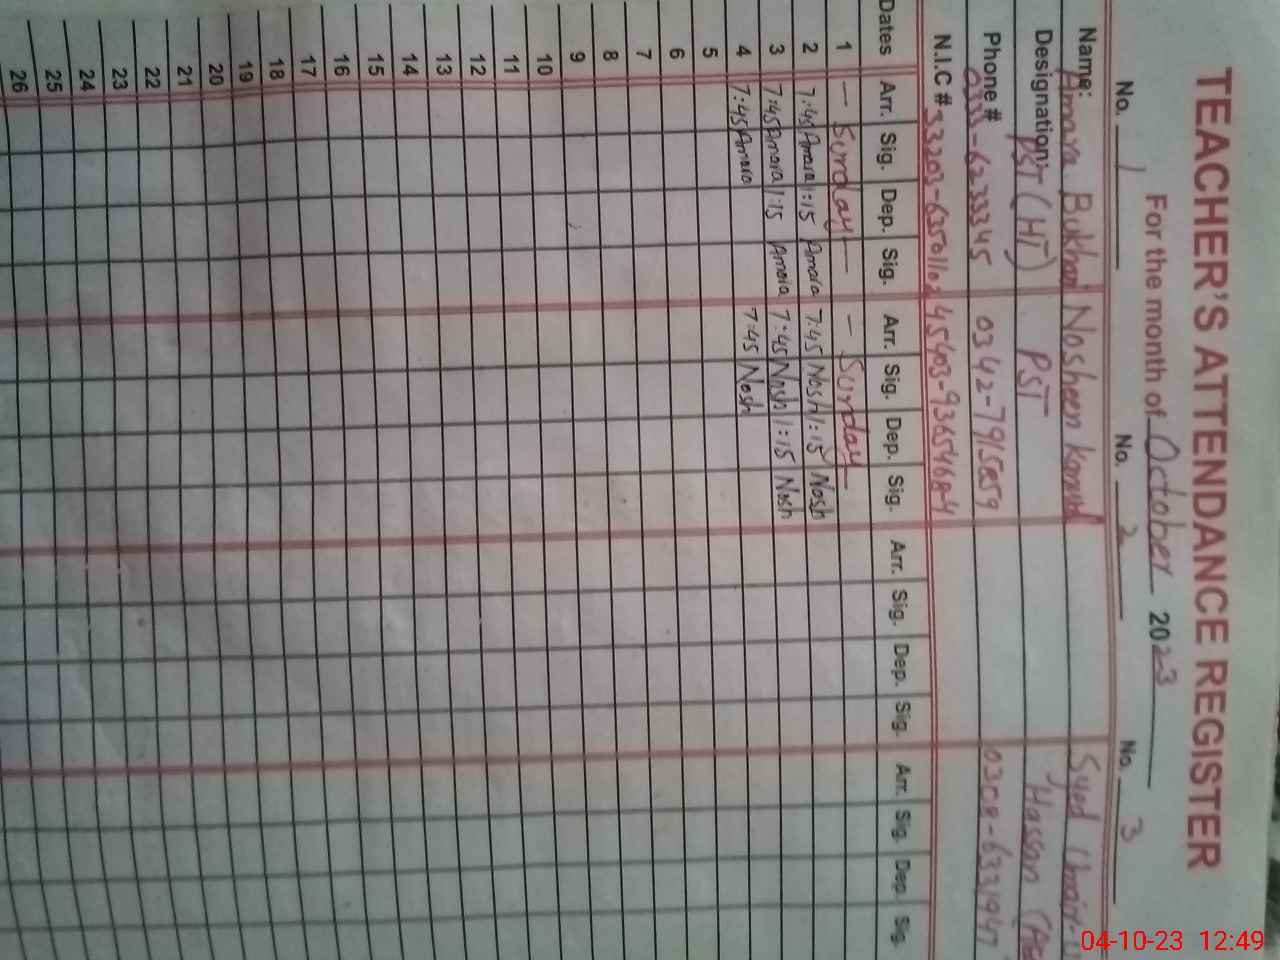 TEACHER'S ATTENDANCE REGISTER
For the month of October 2023
No. 1 No. 2 No. 3
Name: Amara Bukhari Nosheen Kanwal Syed
Designation: PST (HT) PST Hassan
Phone # 0333-6233345 0342-7915859 0308-6331947
N.I.C #
Dates Arr. Sig. Dep. Sig. Arr. Sig. Dep. Sig. Arr. Sig. Dep. Sig. Arr. Sig. Dep. Sig.
1 — Sunday — — Sunday —
2 7:45 Amara 1:15 Amara 7:45 Nosh 1:15 Nosh
3 7:45 Amara 1:15 Amara 7:45 Nosh 1:15 Nosh
4 7:45 Amara 7:45 Nosh
5
6
7
8
9
10
11
12
13
14
15
16
17
18
19
20
21
22
23
24
25
26
04-10-23 12:49